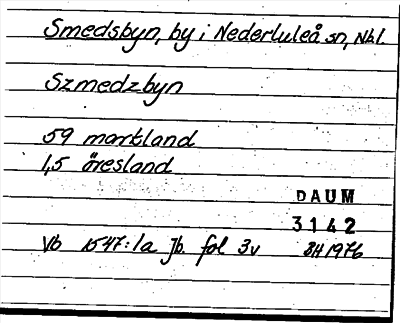 Smedsbyn, by i Nederluleå sn, Nbl.
Szmedzbyn
59 markland
1,5 öresland
DAUM
3142
Vb 1547:1a Jb. fol 3v BH 1976